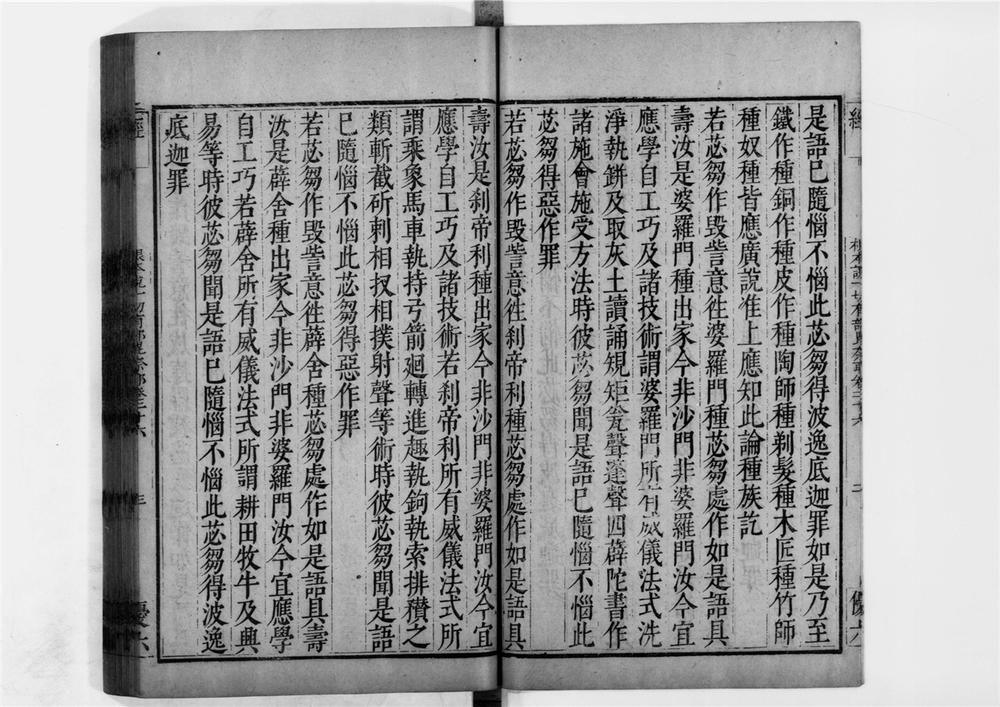 是語已隨惱不惱此苾芻得波逸底迦罪如是乃至
鐵作種銅作種皮作種陶師種剃髮種木匠種竹師
種奴種皆應廣說准上應知此論種族訖
若苾芻作毀訾意徃婆羅門種苾芻處作如是語具
壽汝是婆羅門種出家今非沙門非婆羅門汝今宜
應學自工巧及諸技術謂婆羅門所有威儀法式洗
淨執缾及取灰土讀誦規矩瓮聲蓬聲四薜陀書作
諸施會施受方法時彼苾芻聞是語已隨惱不惱此
苾芻得惡作罪
若苾芻作毀訾意徃刹帝利種苾芻處作如是語具
壽汝是刹帝利種出家今非沙門非婆羅門汝今宜
應學自工巧及諸技術若刹帝利所有威儀法式所
謂乘象馬車執持弓箭廻轉進趣執鉤執索排䂎之
類斬截斫刺相扠相撲射聲等術時彼苾芻聞是語
已隨惱不惱此苾芻得惡作罪
若苾芻作毀訾意徃薜舍種苾芻處作如是語具壽
汝是薜舍種出家今非沙門非婆羅門汝今宜應學
自工巧若薜舍所有威儀法式所謂耕田牧牛及典
易等時彼苾芻聞是語已隨惱不惱此苾芻得波逸
底迦罪